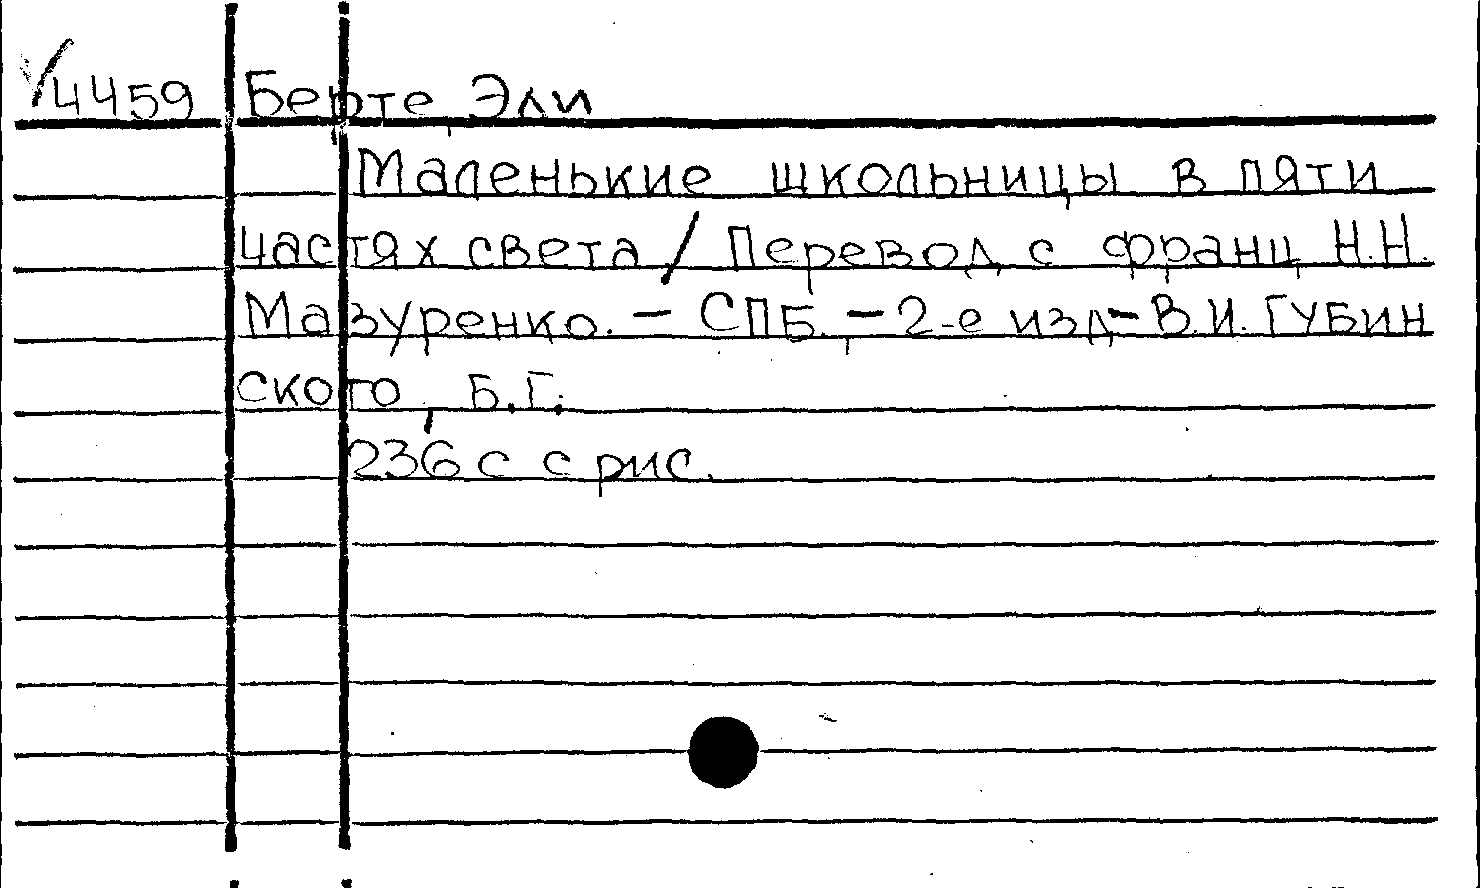 4459 Берте Эли
Маленькие школьницы в пяти
частях света / Перевод с франц Н.Н.
Мазуренко. - СПБ. - 2-е изд- В.И. Губин
ского, Б.Г.
236 с с рис.